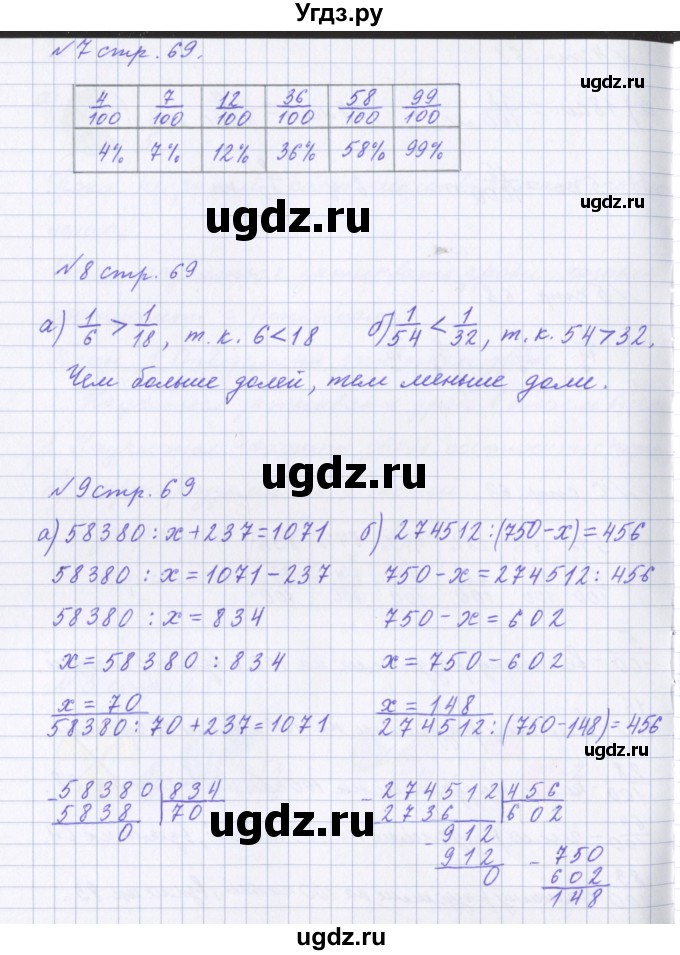 Угдз.ру
№7 стр. 69.
ugdz.ru
4/100 7/100 12/100 36/100 58/100 99/100
4% 7% 12% 36% 58% 99%
ugdz.ru
ugdz.ru
№8 стр. 69
а) 1/6 > 1/18, т.к. 6<18 б) 1/54 < 1/32, т.к. 54>32.
ugdz.ru
Чем больше долей, тем меньше доли.
ugdz.ru
№9 стр. 69
а) 58380 : х + 237 = 1071 б) 274512 : (750 - х) = 456
58380 : х = 1071 - 237 750 - х = 274512 : 456
58380 : х = 834 750 - х = 602
х = 58380 : 834 х = 750 - 602
х = 70 х = 148
58380 : 70 + 237 = 1071 274512 : (750 - 148) = 456
ugdz.ru
ugdz.ru
58380 834 274512 456
5838 70 2736 602
0 912
912 750
0 602
148
ugdz.ru
ugdz.ru